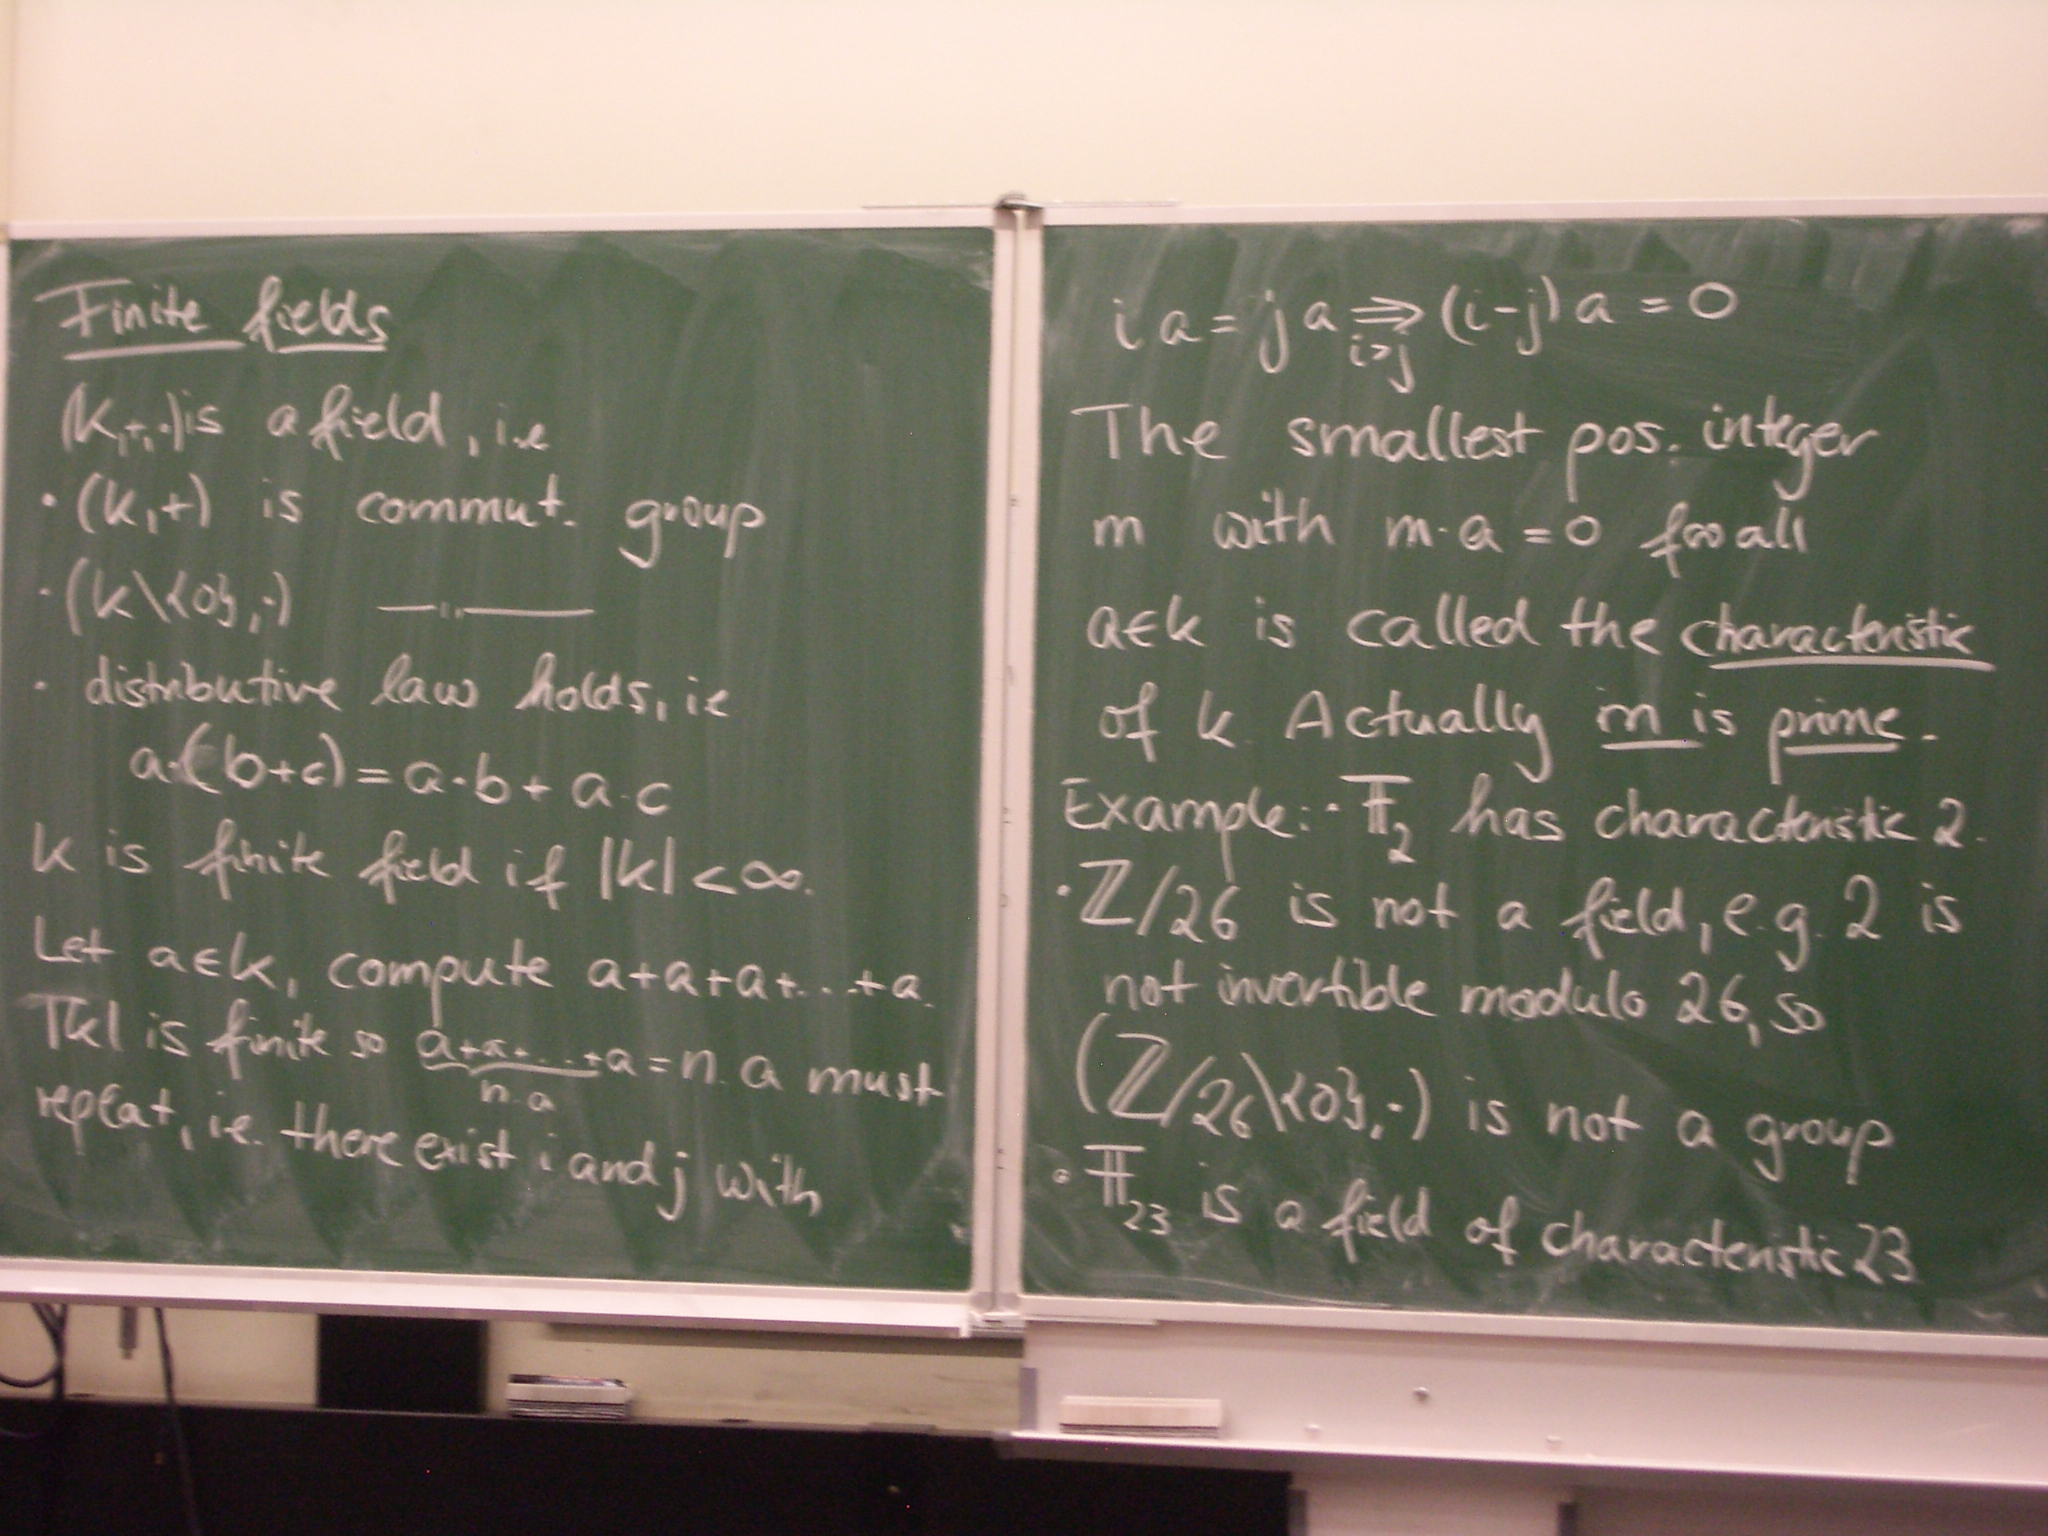 Finite fields
(k,+,·) is a field, i.e
· (k,+) is commut. group
· (k\{0},·) —— " ——
· distributive law holds, ie
a·(b+c) = a·b + a·c
k is finite field if |k| < ∞.
Let a∈k, compute a+a+a+...+a.
|k| is finite so a+a+...+a = n.a must
n.a
repeat, i.e. there exist i and j with
i a = j a ⇒ (i-j) a = 0
i>j
The smallest pos. integer
m with m·a = 0 for all
a∈k is called the characteristic
of k. Actually m is prime.
Example: · 𝔽₂ has characteristic 2.
· ℤ/26 is not a field, e.g. 2 is
not invertible modulo 26, so
(ℤ/26\{0},·) is not a group
· 𝔽₂₃ is a field of characteristic 23